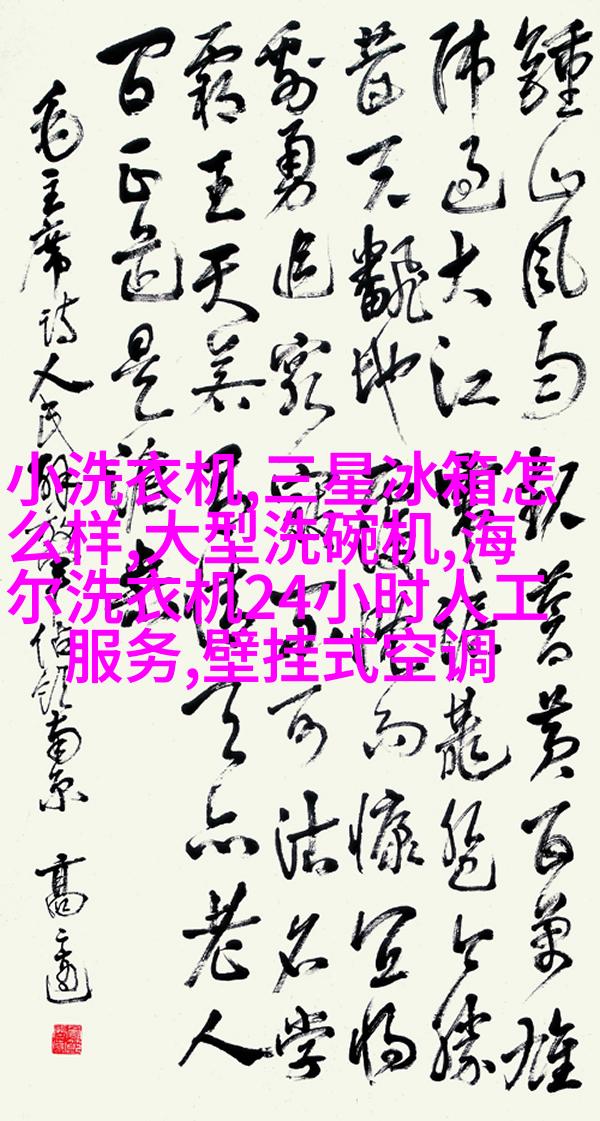 鍾山風雨起蒼黃百萬雄
師過大江虎踞龍盤今勝
昔天飜地覆慨而慷宜將
剩勇追窮寇不可沽名學
霸王天若有情天亦老人
間正道是滄桑
毛主席詩人民解放軍佔領南京 高
小洗衣机,三星冰箱怎
么样,大型洗碗机,海
尔洗衣机24小时人工
服务,壁挂式空调